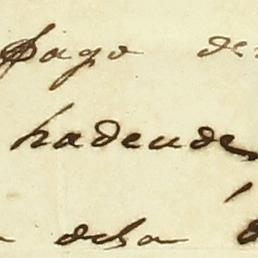 pago de
hadeude
a dcha